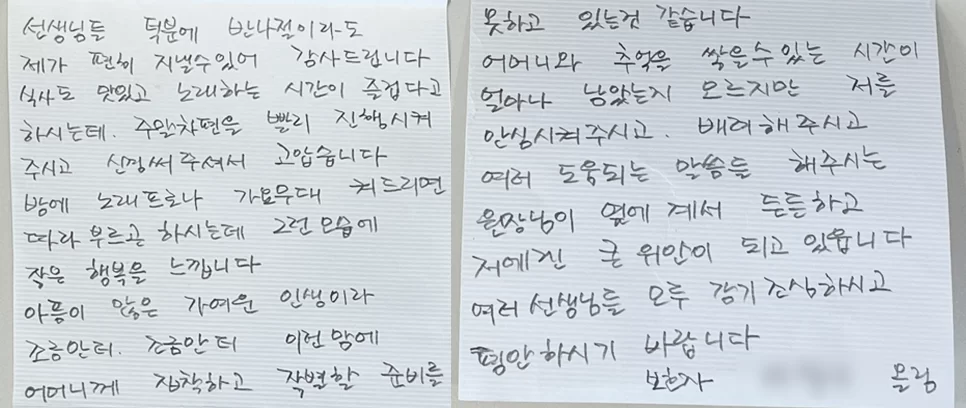 선생님들 덕분에 반나절이라도
제가 편히 지낼수있어 감사드립니다
식사도 맛있고 노래하는 시간이 즐겁다고
하시는데. 주말차편을 빨리 진행시켜
주시고 신경써주셔서 고맙습니다
밤에 노래프로나 가요무대 켜드리면
따라 부르곤 하시는데 그런모습에
작은 행복을 느낍니다
아픔이 많은 가여운 인생이라
조금만더. 조금만더 이런맘에
어머니께 집착하고 작별할 준비를
못하고 있는건 같습니다
어머니와 추억을 쌓을수있는 시간이
얼마나 남았는지 모르지만 저를
안심시켜주시고. 배려해주시고
여러 도움되는 말씀들 해주시는
원장님이 옆에 계셔 든든하고
저에겐 큰 위안이 되고 있읍니다
여러선생님들 모두 감기조심하시고
평안하시기 바랍니다
보호자 올림